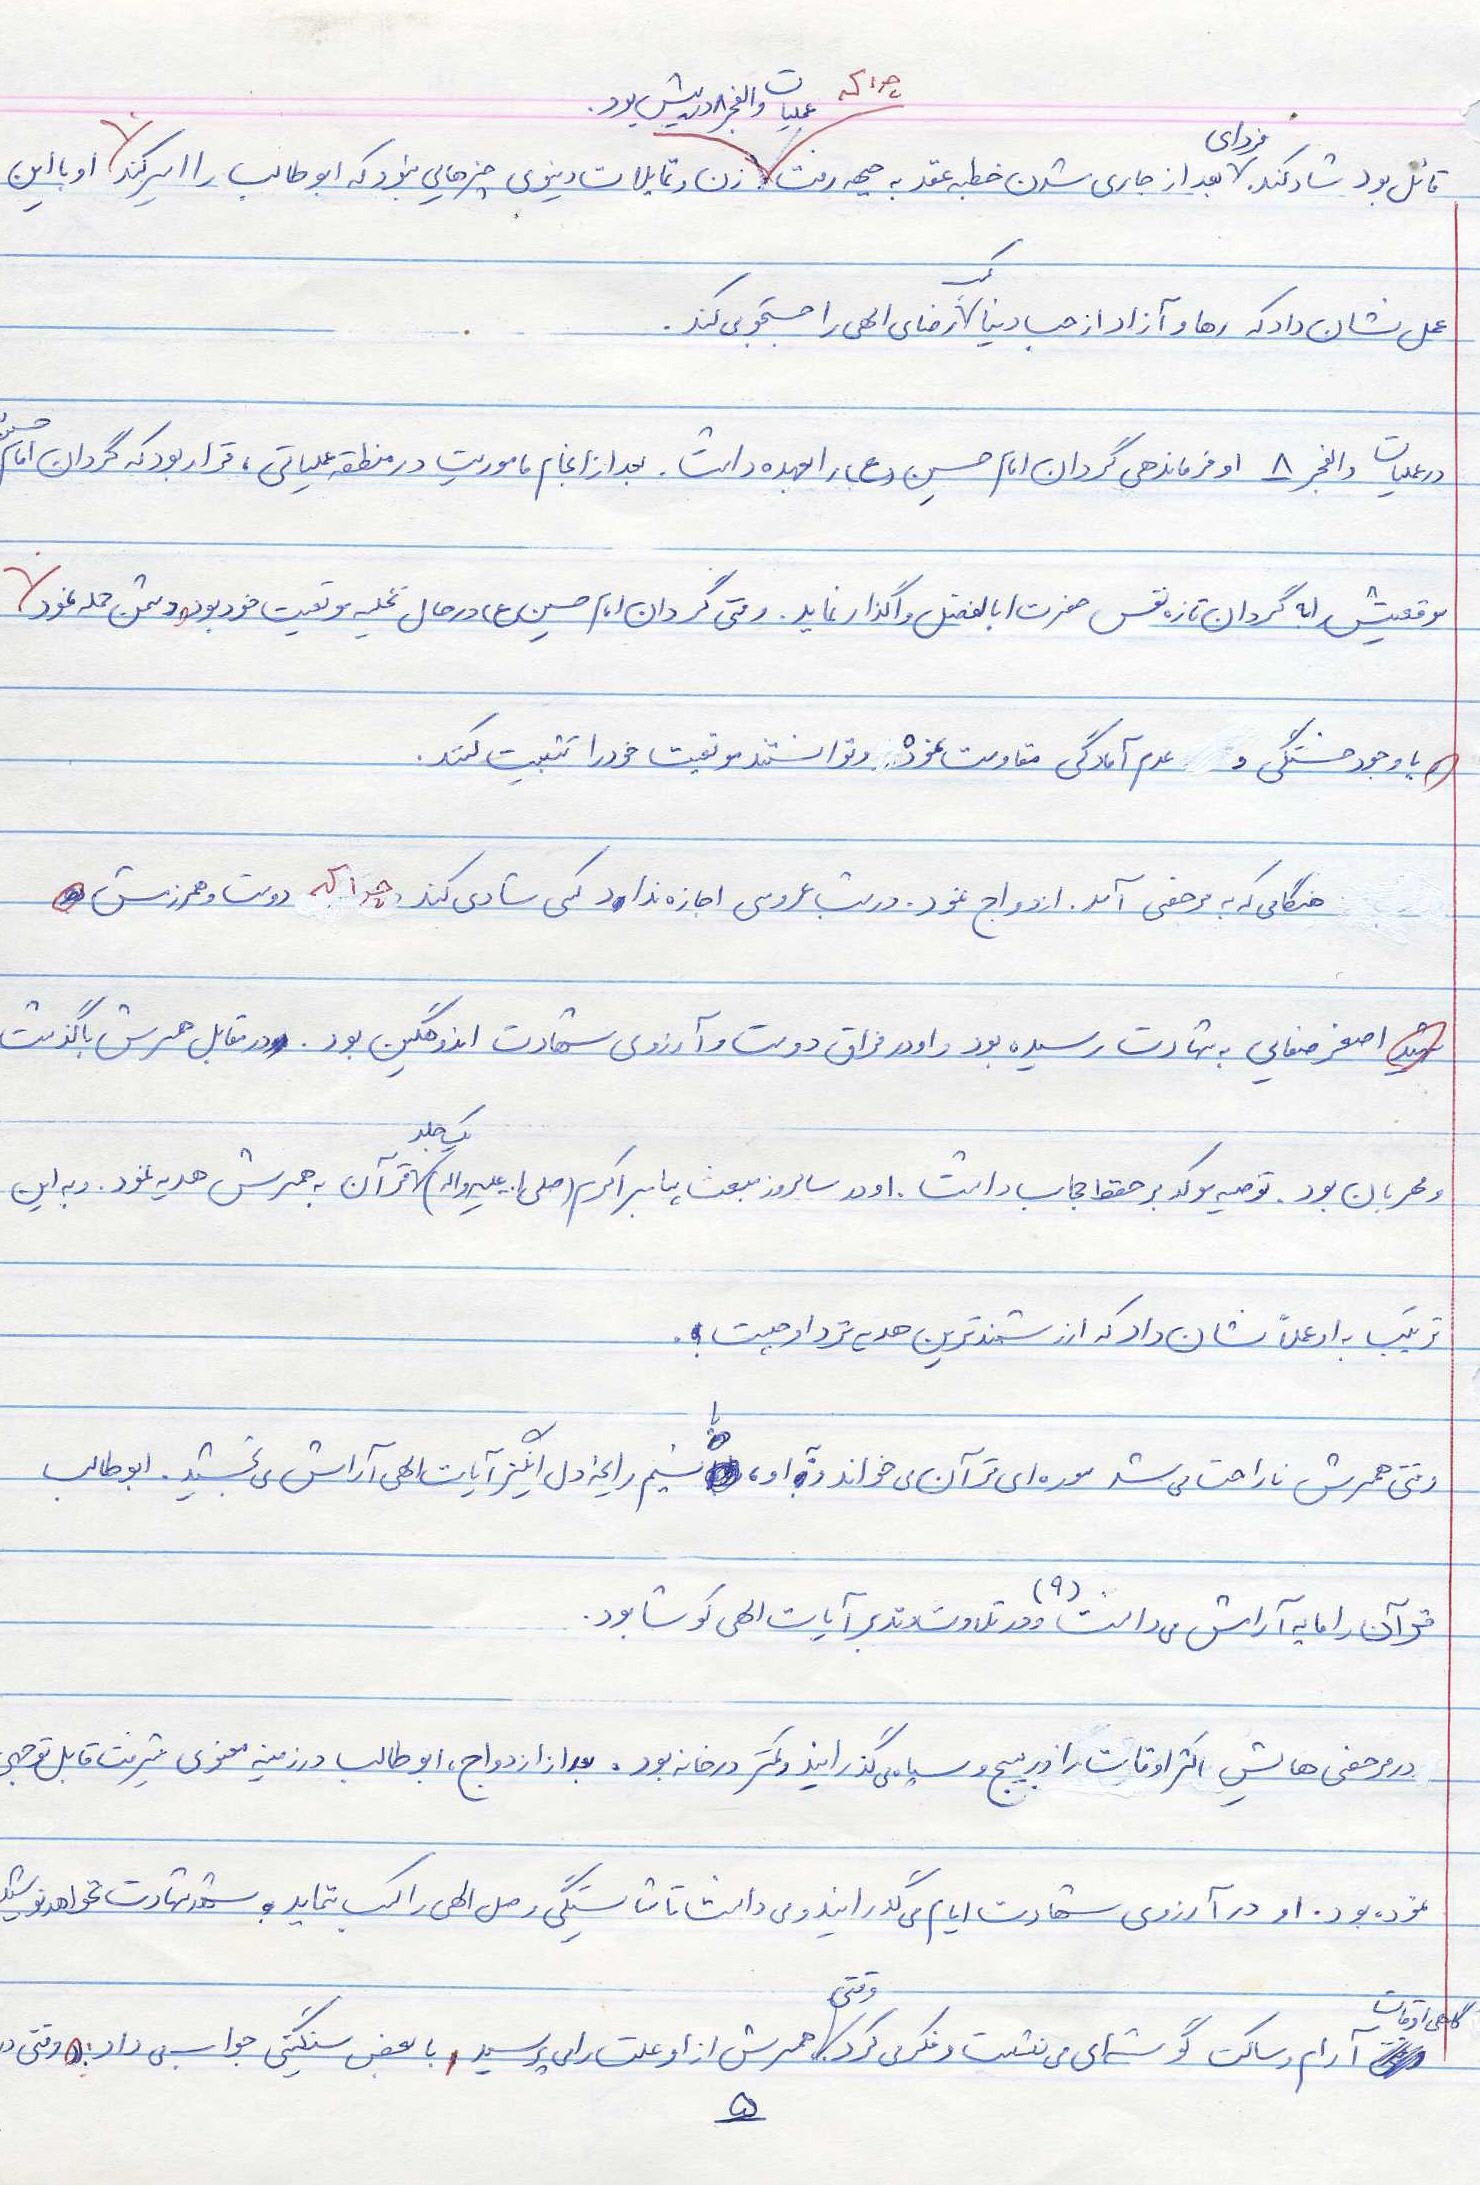 چرا که
عملیات والفجر ۸ در پیش بود.
فردای
قائل بود شاد کند. بعد از جاری شدن خطبه عقد به جبهه رفت زن و تمایلات دنیوی چیزهایی نبود که ابوطالب را اسیر کند او با این
عمل نشان داد که رها و آزاد از حب دنیا رضای الهی را جستجو می کند.
در عملیات والفجر ۸ او فرماندهی گردان امام حسین (ع) را بعهده داشت. بعد از انجام ماموریت در منطقه عملیاتی، قرار بود که گردان امام حسین
موقعیتش را به گردان تازه نفس حضرت ابالفضل واگذار نماید. وقتی گردان امام حسین (ع) در حال تخلیه موقعیت خود بود دشمن حمله نمود
با وجود خستگی و عدم آمادگی مقاومت نمود و توانستند موقعیت خود را تثبیت کنند.
هنگامی که به مرخصی آمد. ازدواج نمود. در شب عروسی اجازه نداد کسی شادی کند چرا که دوست و همرزمش
شهید اصغر صفایی به شهادت رسیده بود و او در فراق دوست و آرزوی شهادت اندوهگین بود. در مقابل همسرش با گذشت
یک جلد
و مهربان بود. توصیه موکد بر حفظ حجاب داشت. او در سالروز مبعث پیامبر اکرم (صلی ا... علیه واله) قرآن به همسرش هدیه نمود. و به این
ترتیب به او عملاً نشان داد که ارزشمندترین هدیه نزد او چیست.
وقتی همسرش ناراحت می شد سوره ای قرآن می خواند و به او، با نسیم رایحه دل انگیز آیات الهی آرامش می بخشید. ابوطالب
قرآن را مایه آرامش می دانست (۹) و در تلاوت و تدبر آیات الهی کوشا بود.
در مرخصی هایش اکثر اوقات را در بسیج و سپاه می گذرانید و کمتر در خانه بود. بعد از ازدواج، ابوطالب در زمینه معنوی پیشرفت قابل توجهی
نموده بود. او در آرزوی شهادت ایام می گذرانید و می دانست تا شایستگی وصل الهی را کسب ننماید شهد شهادت نخواهد نوشید
گاهی اوقات
وقتی
آرام و ساکت گوشه ای می نشست و فکر می کرد. همسرش از او علت را می پرسید، با بغض سنگینی جواب می داد: وقتی در
۵